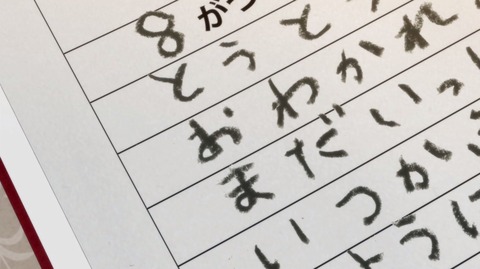 8がつ
とうと
おわかれ
まだいっ
いつか
ように